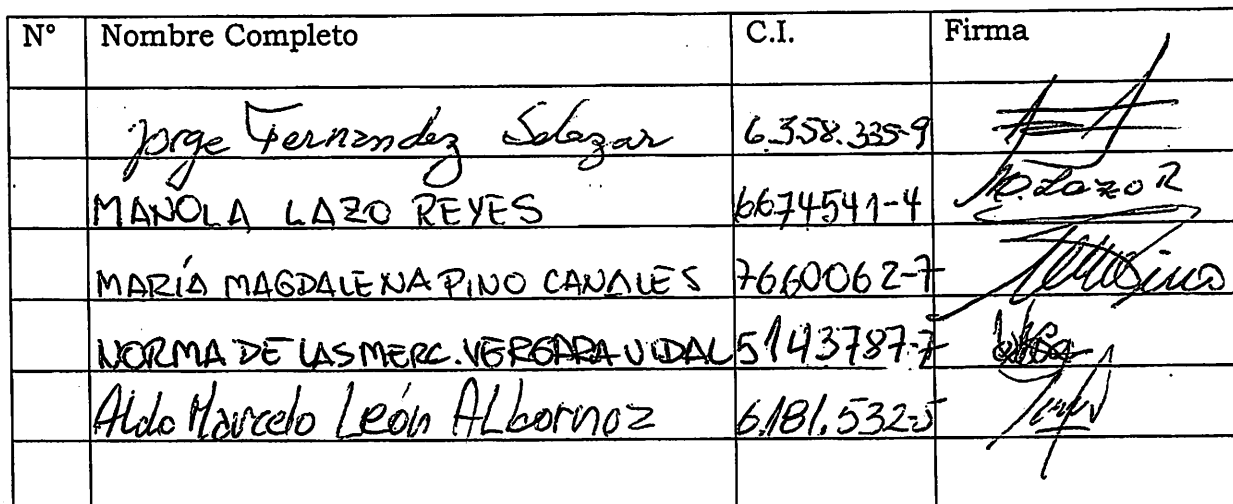 N° Nombre Completo C.I. Firma
Jorge Fernandez Salazar 6.358.335-9
MANOLA LAZO REYES 6674541-4 M. Lazo R
MARÍA MAGDALENA PINO CANALES 7660062-7
NORMA DE LAS MERC. VERGARA VIDAL 5143787-7
Aldo Marcelo León ALbornoz 6.181.532-5